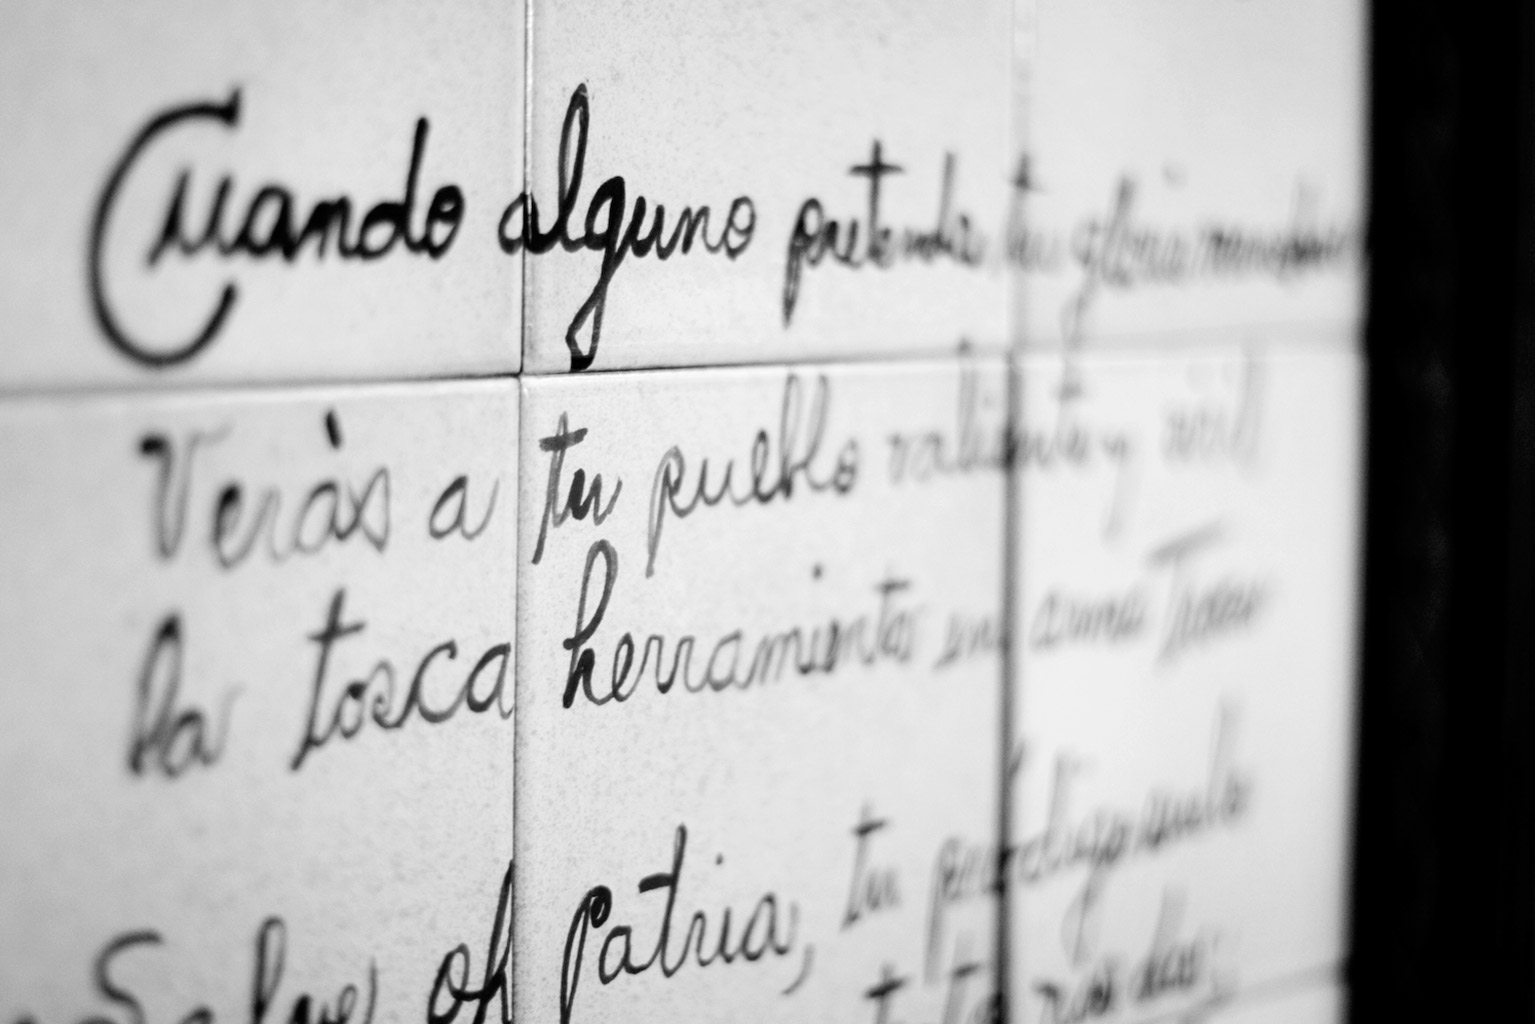 Cuando alguno pretenda tu gloria manchar
Verás a tu pueblo valiente y viril
la tosca herramienta en arma Trocar
Salve oh patria, tu pródigo suelo